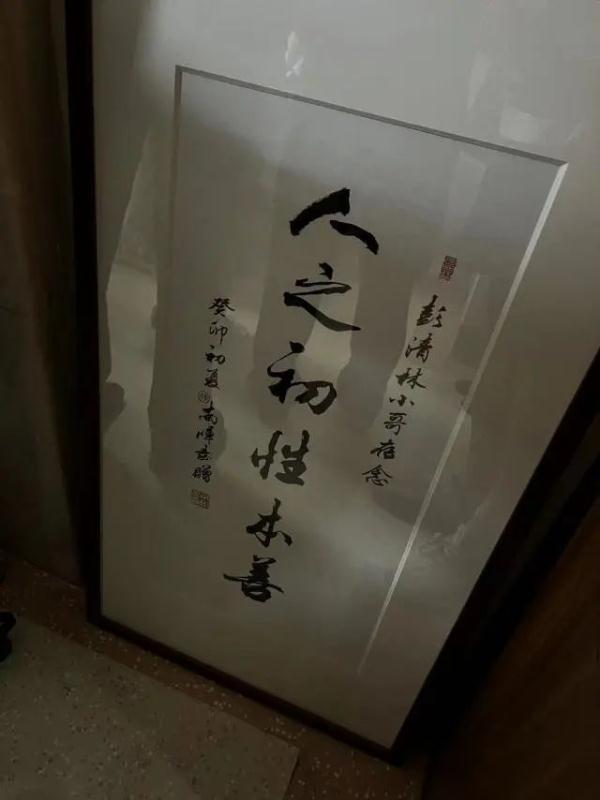 彭清林小哥存念
人之初性本善
癸卯初夏